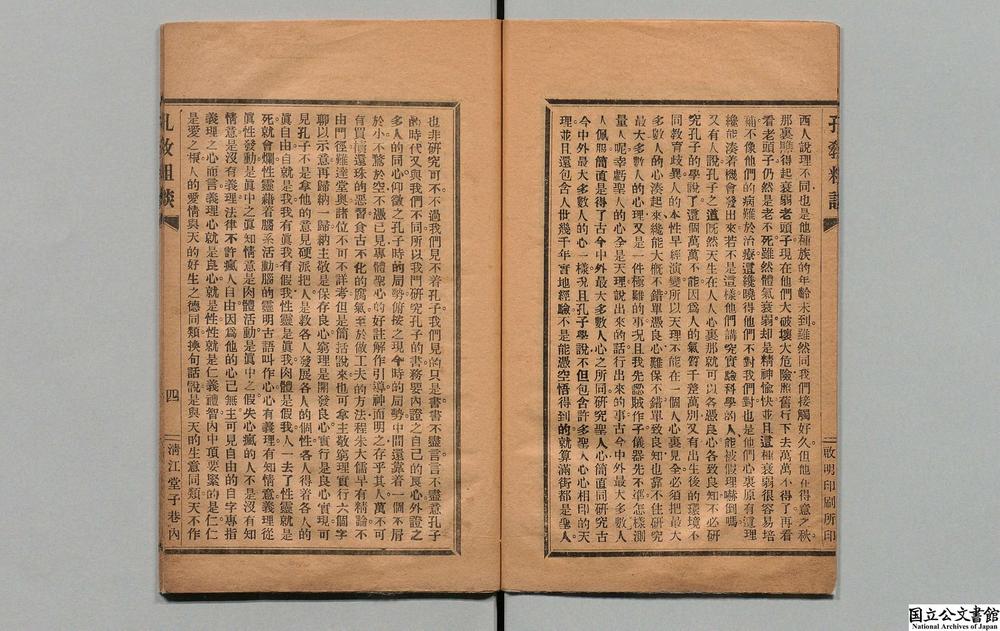 孔教粗談
西人說理不同也是他種族的年齡未到雖然同我們接觸好久但他在得意之秋
那裏聽得起衰弱老頭子現在他們大破壞大危險照舊行下去萬萬不得了再看
看老頭子仍然是老不死雖然體氣衰弱却是精神愉快並且這種衰弱很容易培
補不像他們的病難於治療這纔曉得他們不對我們對也是他們心裏原有這理
纔能湊着機會發出來若不是這樣他們講究實驗科學的人能被假理嚇倒嗎
又有人說孔子之道既然天生在人人心裏那就可以各憑良心各致良知不必研
究孔子的學說了這個萬萬不能因爲人的氣質千差萬別又有出生後的環境不
同教育歧異人的本性早經演變所以天理不能在一個人心裏見全必須把最大
多數人的心湊起來纔能大概不錯單憑良心難保不錯單致良知也靠不住研究
最大多數人的心理又是一件極難的事況且我先懸賊作子儀器先不準怎樣測
量人呢幸虧聖人的心全是天理說出來的話行出來的事古今中外最大多數人
人佩服簡直是得了古今中外最大多數人心之所同研究聖人心簡直同研究古
今中外最大多數人的心一樣況且孔子學說不但包含許多聖人心心相印的天
理並且還包含人世幾千年實地經驗不是能憑空悟得到的就算滿街都是聖人
啟明印刷所印
也非研究可不不過我們見不着孔子我們見的只是書書不盡言言不盡意孔子
的時代又與我們不同所以我門研究孔子的書務要內證之自己的良心外證之
多人的同心仰徵之孔子時的局勢俯按之現今時的局勢中間還靠着一個不屑
於小不騖於空不憑已見專體聖心的好註解作引導神而明之存乎其人萬不可
有買櫝還珠的惡習食古不化的腐氣至於做工夫的方法程朱大儒早有精論不
由門徑難達堂奧諸位不可不詳考但是簡括說來也可拿主敬窮理實行六個字
聊以示意再歸納一歸納主敬是保存良心窮理是開發良心實行是良心實現可
見孔子不是拿他的意見硬派把人是教各人發展各人的個性各人得着各人的
眞自由自就是我我有眞我有假我性靈是眞我肉體是假我人一去了性靈就是
死就會爛性靈藉着腦系活動腦的靈明古語叫作心心有義理有知情意義理從
眞性發動是眞中之眞知情意是肉體活動是眞中之假失心瘋的人不是沒有知
情意是沒有義理法律不許瘋人自由因爲他的心已無主可見自由的自字專指
義理之心而言義理心就是良心就是性性就是仁義禮智內中頂要緊的是仁仁
是愛之根人的愛情與天的好生之德同類換句話說是與天的生意同類天不作
孔教粗談
四
淸江堂子巷內
国立公文書館
National Archives of Japan